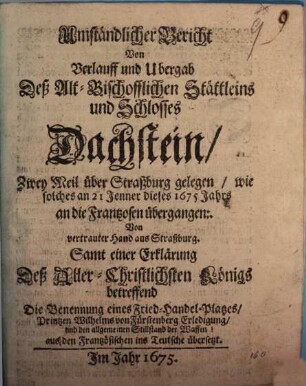 Umständlicher Bericht
Von
Verlauff und Ubergab
Deß Alt-Bischofflichen Stättleins
und Schlosses
Dachstein/
Zwey Meil über Straßburg gelegen / wie
solches an 21 Jenner dieses 1675 Jahrs
an die Frantzosen übergangen:.
Von
vertrauter Hand aus Straßburg.
Samt einer Erklärung
Deß Aller-Christlichsten Königs
betreffend
Die Benennung eines Fried-Handel-Platzes/
Printzen Wilhelms von Fürstenberg Erledigung/
und den allgemeinen Stillstand der Waffen/
aus den Frantzösischen ins Teutsche übersetzt.
Im Jahr 1675.
160